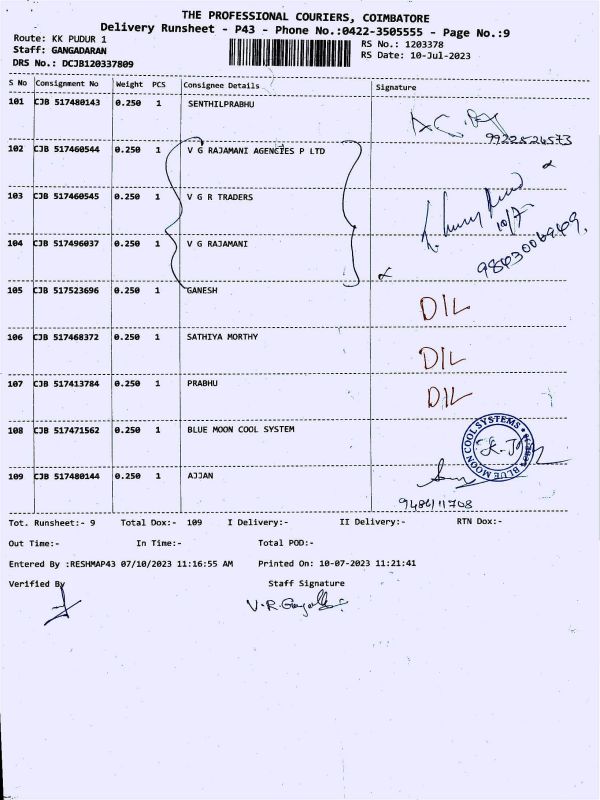 THE PROFESSIONAL COURIERS, COIMBATORE
Delivery Runsheet - P43 - Phone No.:0422-3505555 - Page No.:9
Route: KK PUDUR 1
RS No.: 1203378
Staff: GANGADARAN
RS Date: 10-Jul-2023
DRS No.: DCJB120337809
S No Consignment No Weight PCS Consignee Details Signature
101 CJB 517480143 0.250 1 SENTHILPRABHU
102 CJB 517460544 0.250 1 V G RAJAMANI AGENCIES P LTD
103 CJB 517460545 0.250 1 V G R TRADERS
10/7
104 CJB 517496037 0.250 1 V G RAJAMANI
9843006969
105 CJB 517523696 0.250 1 GANESH D/L
106 CJB 517468372 0.250 1 SATHIYA MORTHY D/L
107 CJB 517413784 0.250 1 PRABHU D/L
108 CJB 517471562 0.250 1 BLUE MOON COOL SYSTEM
BLUE MOON COOL SYSTEMS
109 CJB 517480144 0.250 1 AJJAN
Tot. Runsheet:- 9 Total Dox:- 109 I Delivery:- II Delivery:- RTN Dox:-
Out Time:- In Time:- Total POD:-
Entered By :RESHMAP43 07/10/2023 11:16:55 AM Printed On: 10-07-2023 11:21:41
Verified By Staff Signature